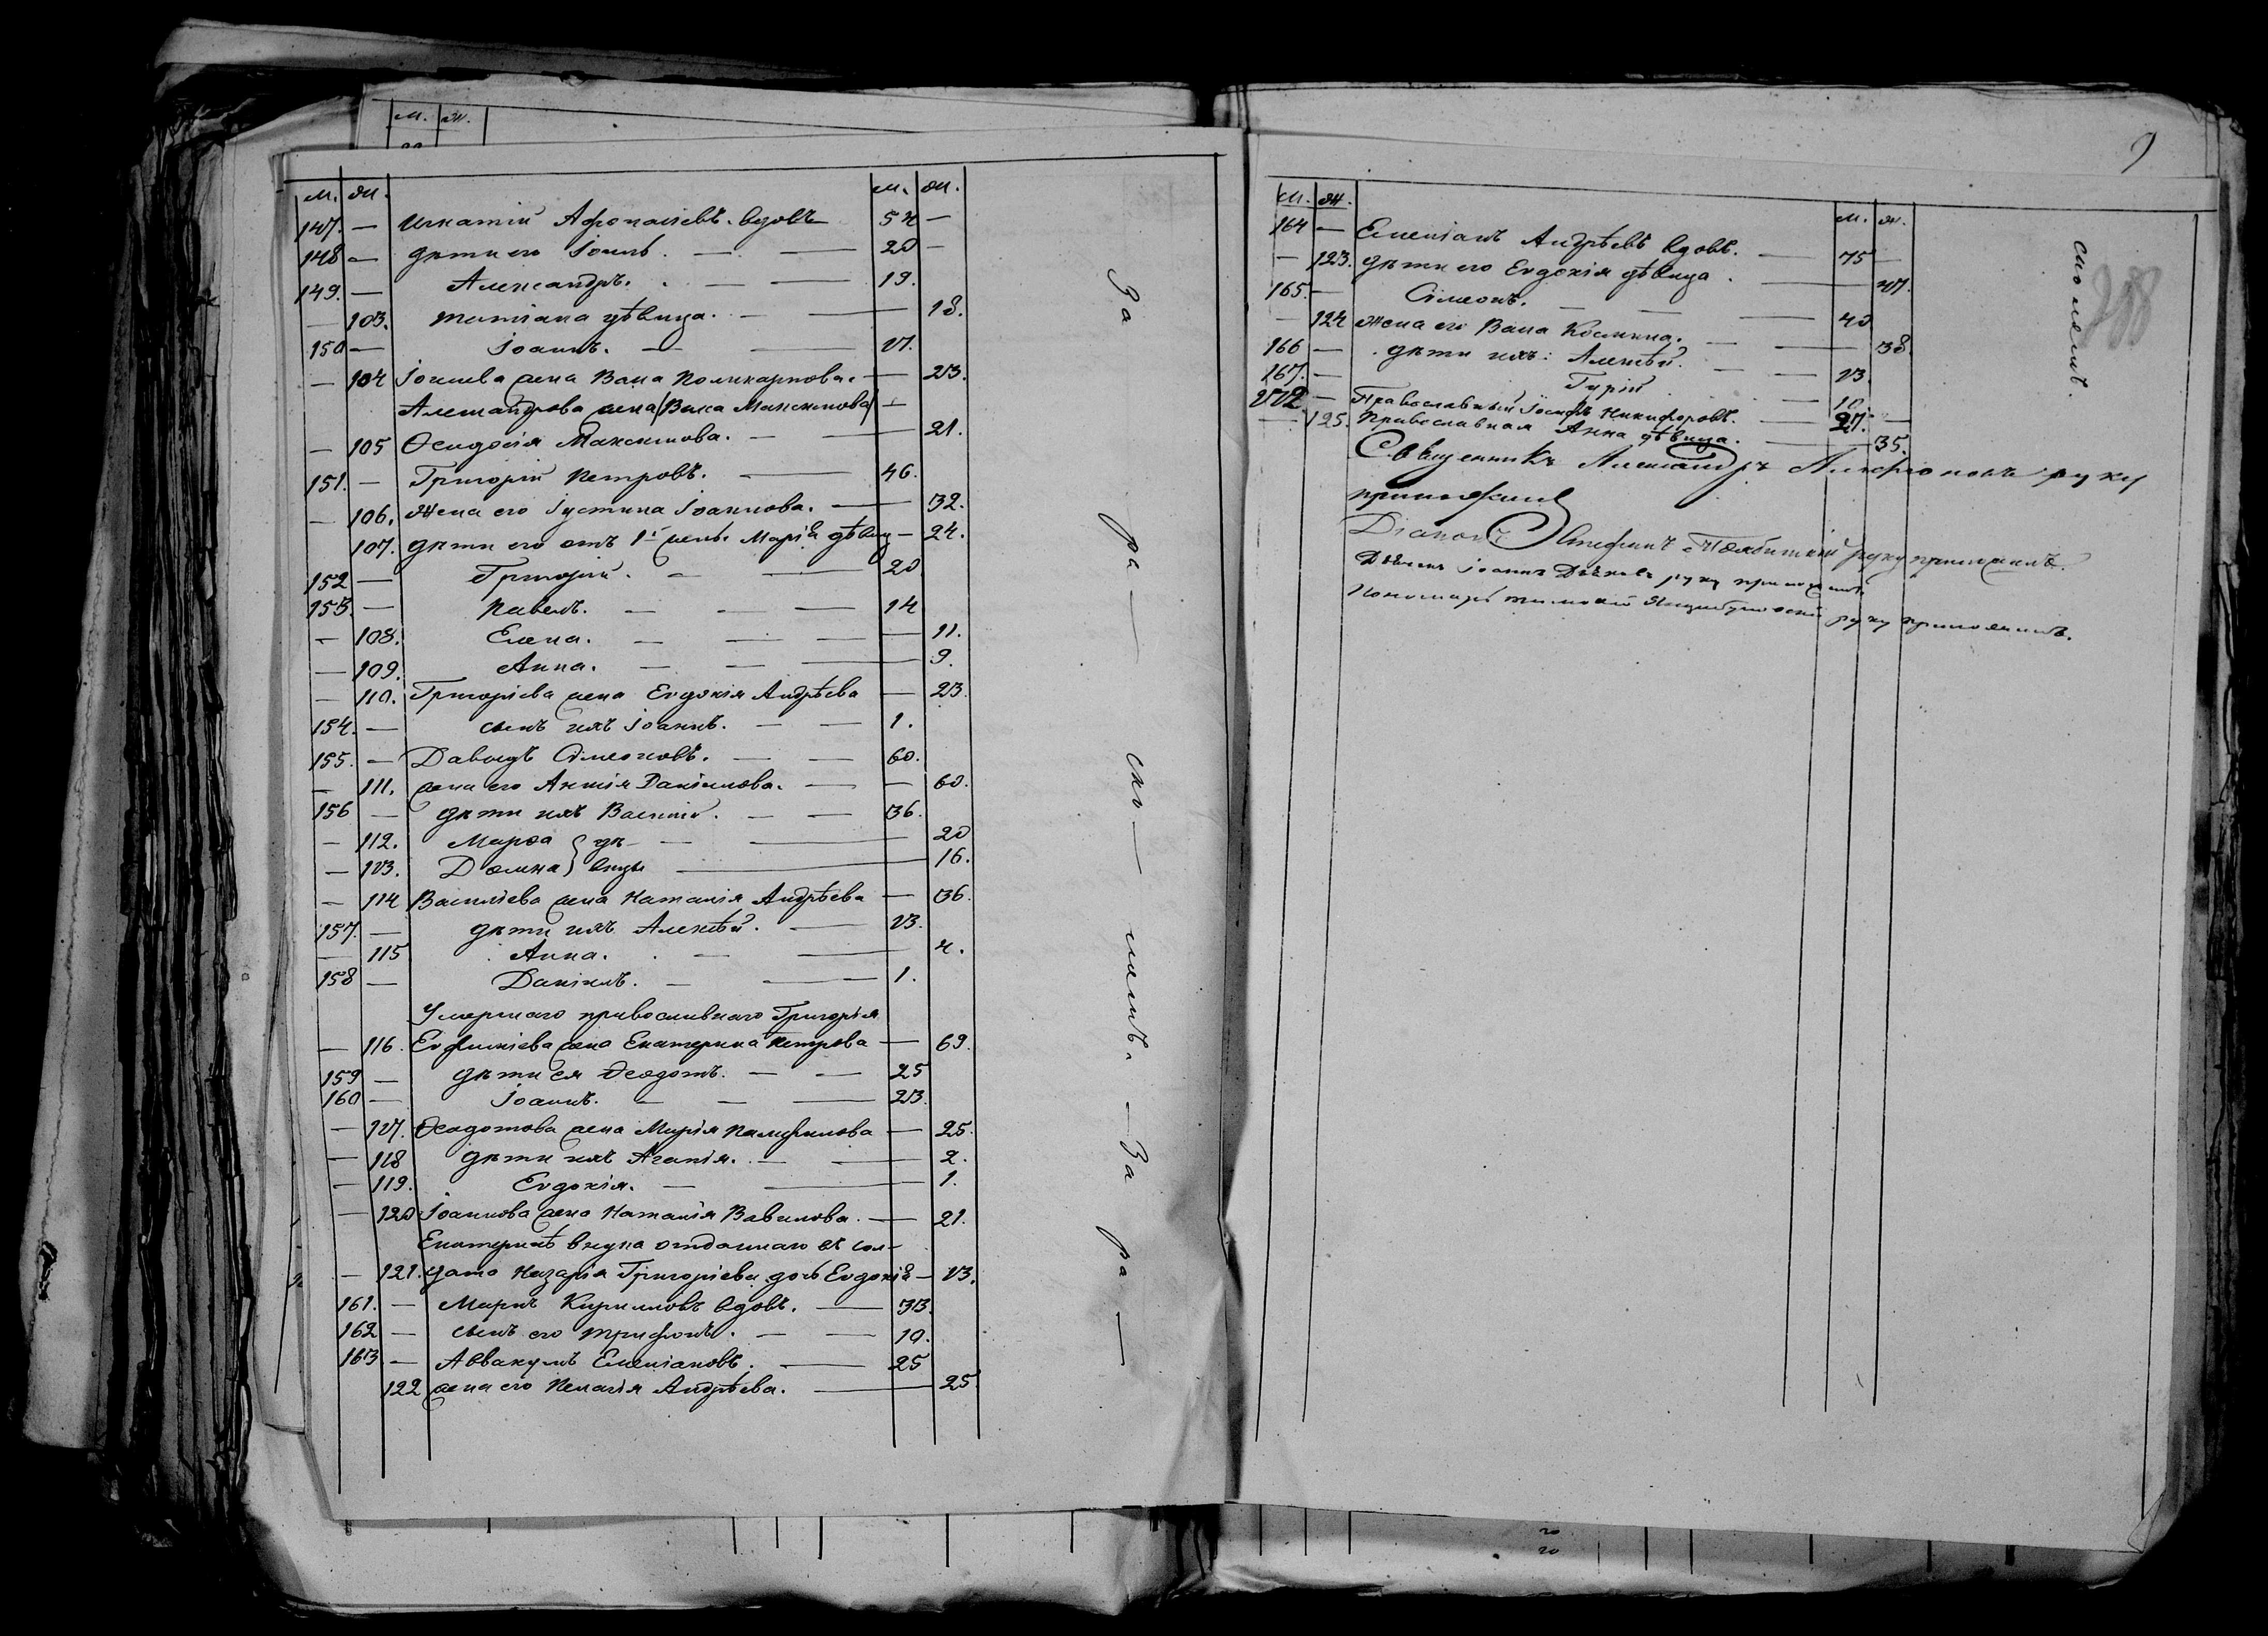 м. ж. м. ж.
147. — Игнатій Афонасіевъ. вдовъ 54 —
148 — дѣти его Іоиль. — — 20 —
149. — Александръ. — — 19.
— 103. Татіана дѣвица. — — 18.
150 — Іоаннъ. — — 17.
— 104 Іоилева жена Васа Поликарпова. — 23.
Александрова жена (Васса Максимова) —
— 105 Ѳеодосія Максимова. — — 21.
151. — Григорій Петровъ. — 46.
— 106. Жена его Іустина Іоаннова. — 32.
107. дѣти его отъ 1й жены Марія дѣвиц — 24.
152 — Григорій. — — 20
153. — Павелъ. — — — 14
— 108. Елена. — — — 11.
— 109. Анна. — — — 9.
— 110. Григоріева жена Евдокія Андрѣева — 23.
154. — сынъ ихъ Іоаннъ. — — 1.
155. — Давыдъ Сімеоновъ. — — 60.
— 111. жена его Анисія Даніилова. — — 60.
156 — дѣти ихъ Василій. — — 36.
— 112. Марѳа } дѣ- — — 20
— 113. Домна } вицы — 16.
— 114 Василіева жена Наталія Андрѣева — 36.
157. — дѣти ихъ Алексѣй. — 13.
— 115 Анна. — — 4.
158 — Даніилъ. — — 1.
Умершаго православнаго Григорія
— 116. Евфиміева жена Екатерина Петрова — 69.
159 — дѣти ея Ѳеодотъ. — — 25
160 — Іоаннъ. — — — 23.
— 117. Ѳеодотова жена Марія Памфилова — 25.
— 118 дѣти ихъ Агапія. — — 2.
— 119. Евдокія. — — 1.
— 120 Іоаннова жена Наталія Вавилова. — 21.
Екатеринѣ внука отданнаго въ сол-
— 121. дата Назарія Григоріева дочь Евдокія — 13.
161. — Маркъ Кирилловъ вдовъ. — 33.
162 — сынъ его Трифонъ. — — 10.
163 — Аввакумъ Емеліановъ. — 25
122 жена его Пелагія Андрѣева. — 25.
За — ра — ско — ломъ. — За — ра —
9
288
м. ж. м. ж.
164 — Емеліанъ Андрѣевъ вдовъ. — 75 —
— 123. дѣти его Евдокія дѣвица. — 47.
165. — Сімеонъ. — — — 40
— 124 Жена его Васа Космина. — — 38.
166 — дѣти ихъ: Алексѣй. — — 13.
167. — Гурій. — 10.
172 — Православный Іосифъ Никифоровъ. — 27. —
— 125. Православная Анна дѣвица. — 35.
Священникъ Александръ руку
приложилъ
Діаконъ Стефанъ руку приложилъ.
Дьячекъ Іоаннъ руку приложилъ.
Пономарь руку приложилъ.
сколомъ.